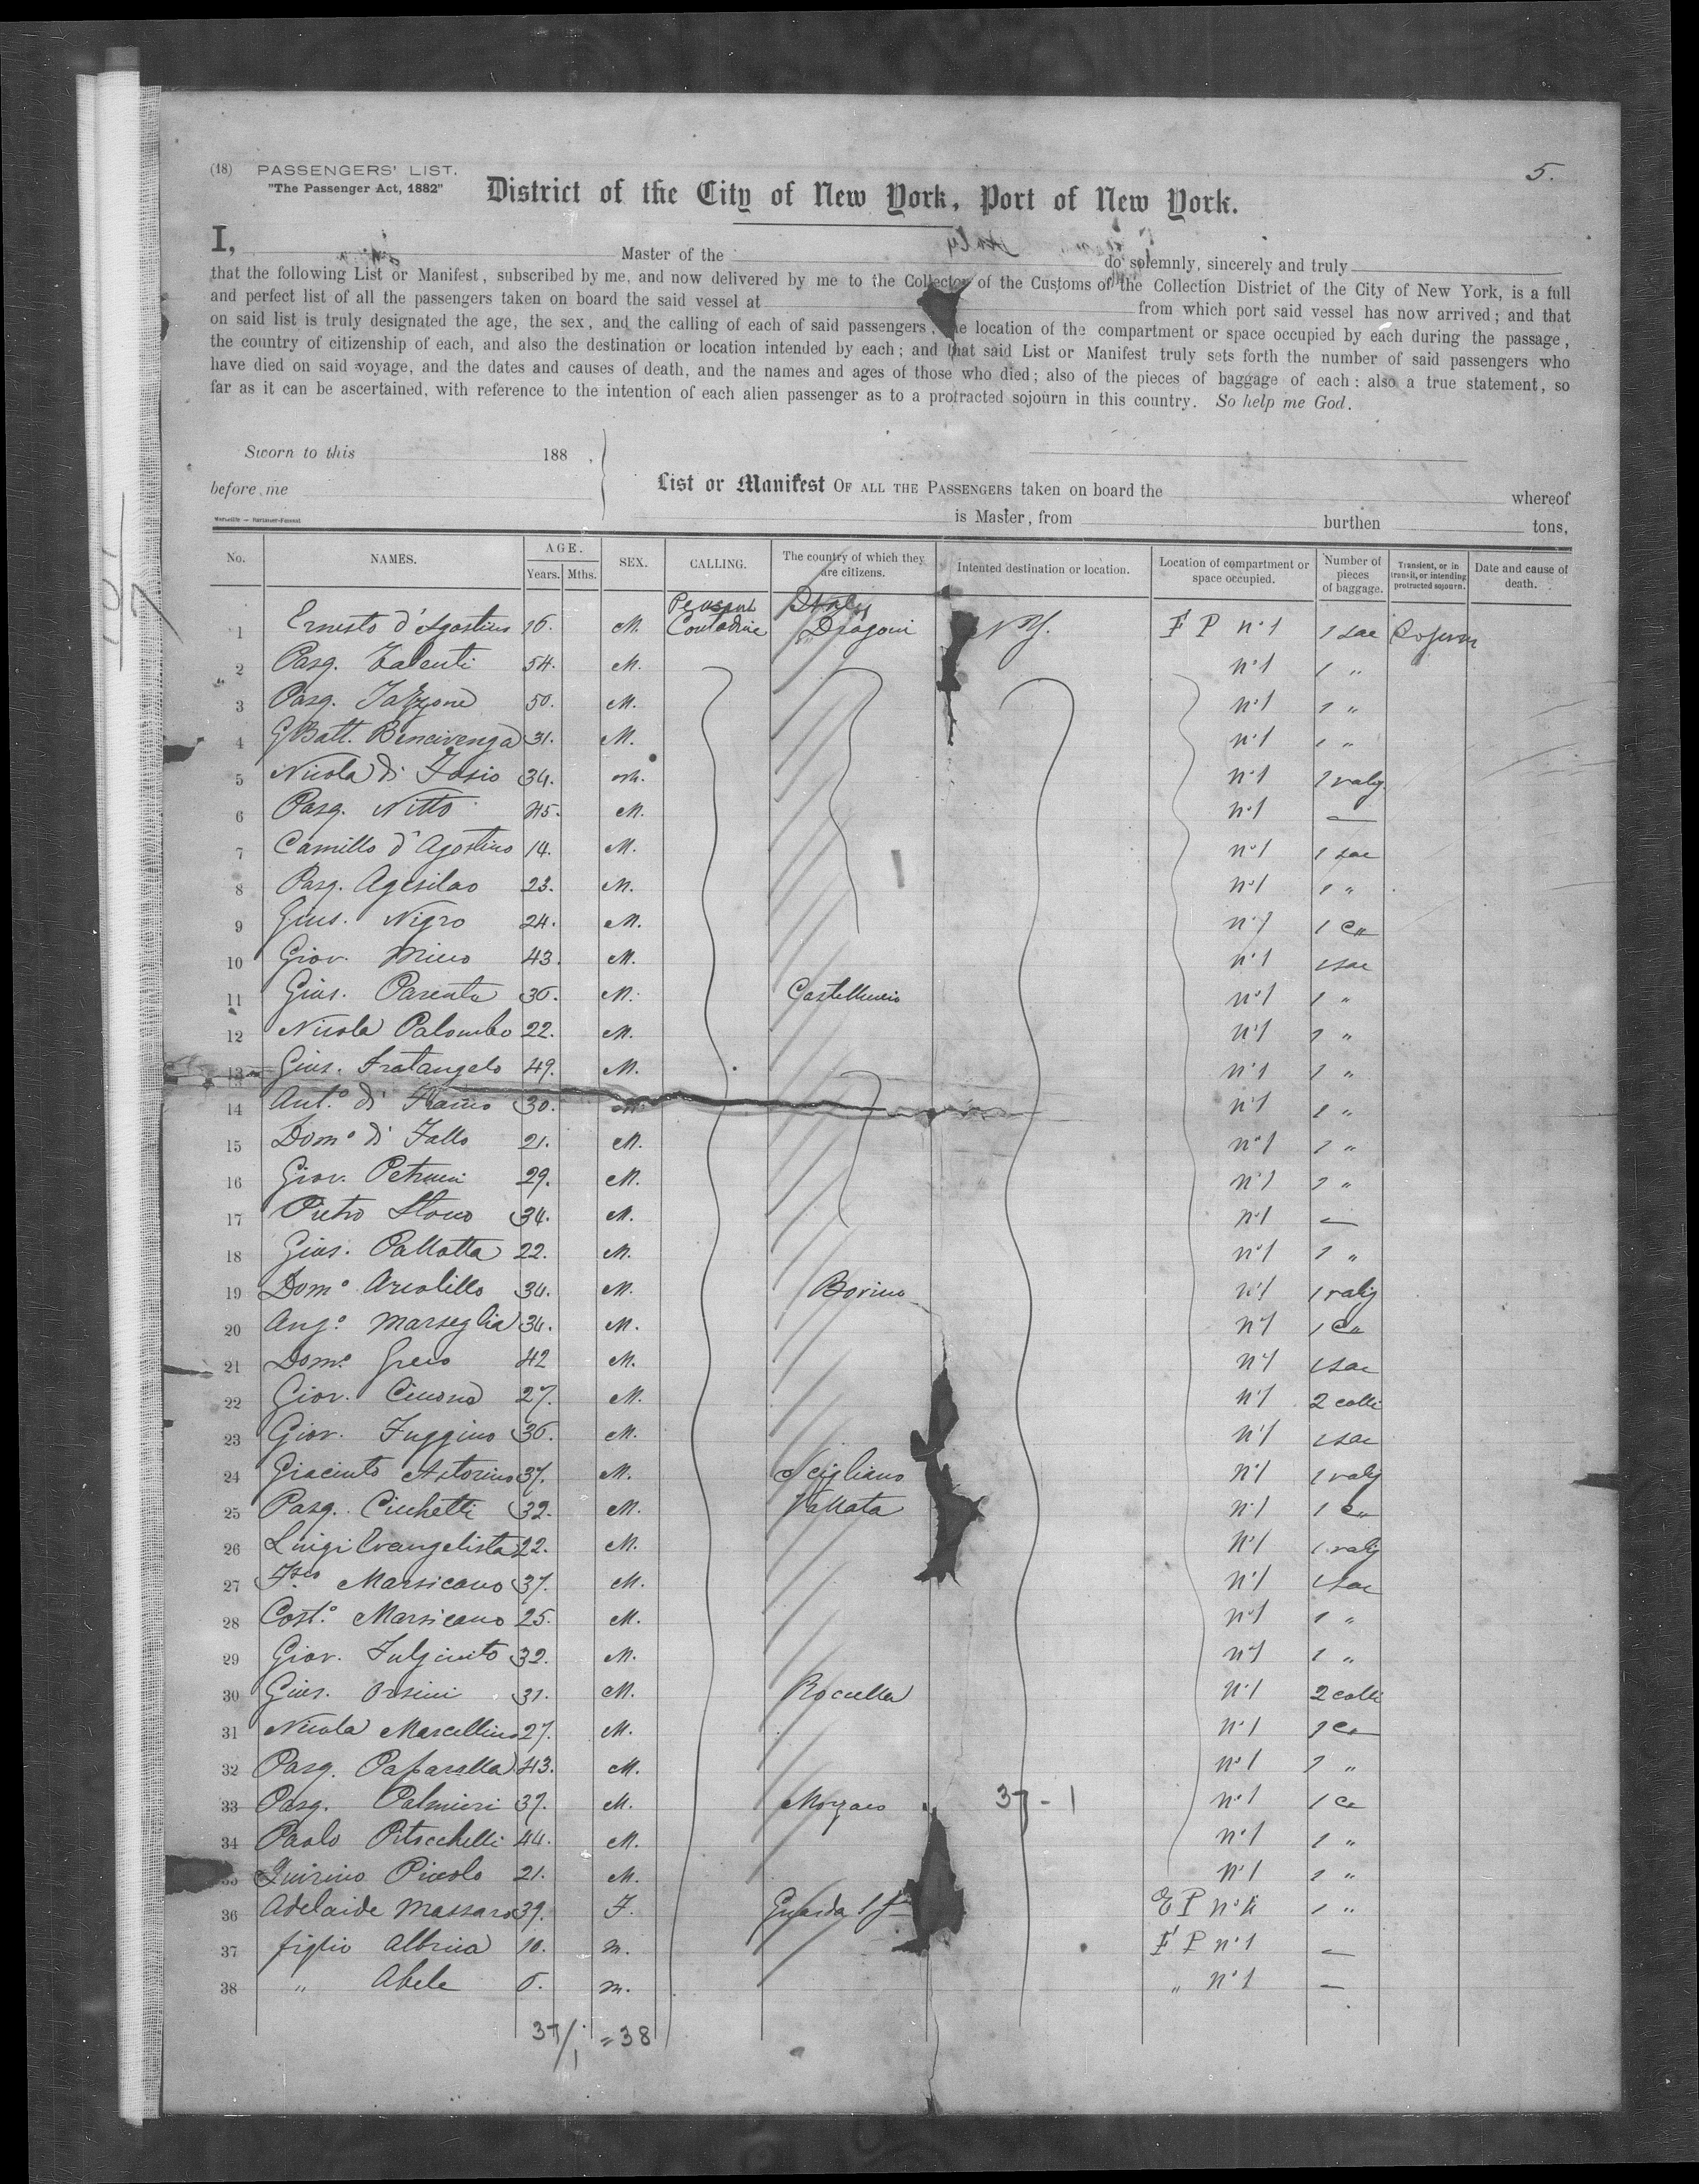 (18) PASSENGERS' LIST.
"The Passenger Act, 1882"
5.
District of the City of New York, Port of New York.
I, Master of the do solemnly, sincerely and truly
that the following List or Manifest, subscribed by me, and now delivered by me to the Collector of the Customs of the Collection District of the City of New York, is a full
and perfect list of all the passengers taken on board the said vessel at from which port said vessel has now arrived; and that
on said list is truly designated the age, the sex, and the calling of each of said passengers, the location of the compartment or space occupied by each during the passage,
the country of citizenship of each, and also the destination or location intended by each; and that said List or Manifest truly sets forth the number of said passengers who
have died on said voyage, and the dates and causes of death, and the names and ages of those who died; also of the pieces of baggage of each: also a true statement, so
far as it can be ascertained, with reference to the intention of each alien passenger as to a protracted sojourn in this country. So help me God.
Sworn to this 188 ,
before me
List or Manifest OF ALL THE PASSENGERS taken on board the whereof
is Master, from burthen tons,
No. NAMES. AGE. Years. Mths. SEX. CALLING. The country of which they are citizens. Intented destination or location. Location of compartment or space occupied. Number of pieces of baggage. Transient, or in transit, or intending protracted sojourn. Date and cause of death.
Peasant Italy
1 Ernesto d'Agostino 16. M. Contadine Dragoni NY. F P nº1 1 sac Sojourn
2 Pasq. Zalenti 54. M. nº1 1 "
3 Pasq. 50. M. nº1 1 "
4 GBatt. Bencivenga 31. M. nº1 1 "
5 Nicola di Fasio 34. M. nº1 1 valig
6 Pasq. Nitto 45. M. nº1 —
7 Camillo d'Agostino 14. M. nº1 1 sac
8 Pasq. Agesilao 23. M. nº1 1 "
9 Gius. Nigro 24. M. nº1 1 Ca
10 Giov. Micco 43. M. nº1 1 sac
11 Gius. Parenta 36. M. Castelluccio nº1 1 "
12 Nicola Palombo 22. M. nº1 1 "
13 Gius. Fratangelo 49. M. nº1 1 "
14 Ant.º di 30. nº1 1 "
15 Dom.º di Fallo 21. M. nº1 1 "
16 Giov. Petrucci 29. M. nº1 1 "
17 Pietro 34. M. nº1 —
18 Gius. Pallotta 22. M. nº1 1 "
19 Dom.º Arcolillo 34. M. Bovino nº1 1 valig
20 Ang.º Marseglia 34. M. nº1 1 Ca
21 Dom.º Greco 42 M. nº1 1 sac
22 Giov. 27. M. nº1 2 colli
23 Giov. Fuggino 36. M. nº1 1 sac
24 Giacinto Astorino 37. M. Scigliano nº1 1 valig
25 Pasq. Cicchetti 32. M. Vallata nº1 1 Ca
26 Luigi Evangelista 22. M. nº1 1 valig
27 Fsco Marsicano 37. M. nº1 1 sac
28 Cost.º Marsicano 25. M. nº1 1 "
29 Giov. Fulginito 32. M. nº1 1 "
30 Gius. Orsini 31. M. Roccella nº1 2 colli
31 Nicola Marcellino 27. M. nº1 1 Ca
32 Pasq. Paparella 43. M. nº1 1 "
33 Pasq. Palmieri 37. M. 37 - 1 nº1 1 Ca
34 Paolo Pitocchelli 44. M. nº1 1 "
35 Quirino Piccolo 21. M. nº1 1 "
36 Adelaide Massaro 39. F. Guarda E P nº 1 "
37 figlio 10. m. F P nº1 —
38 " Abele m. " nº1 —
37/1 = 38